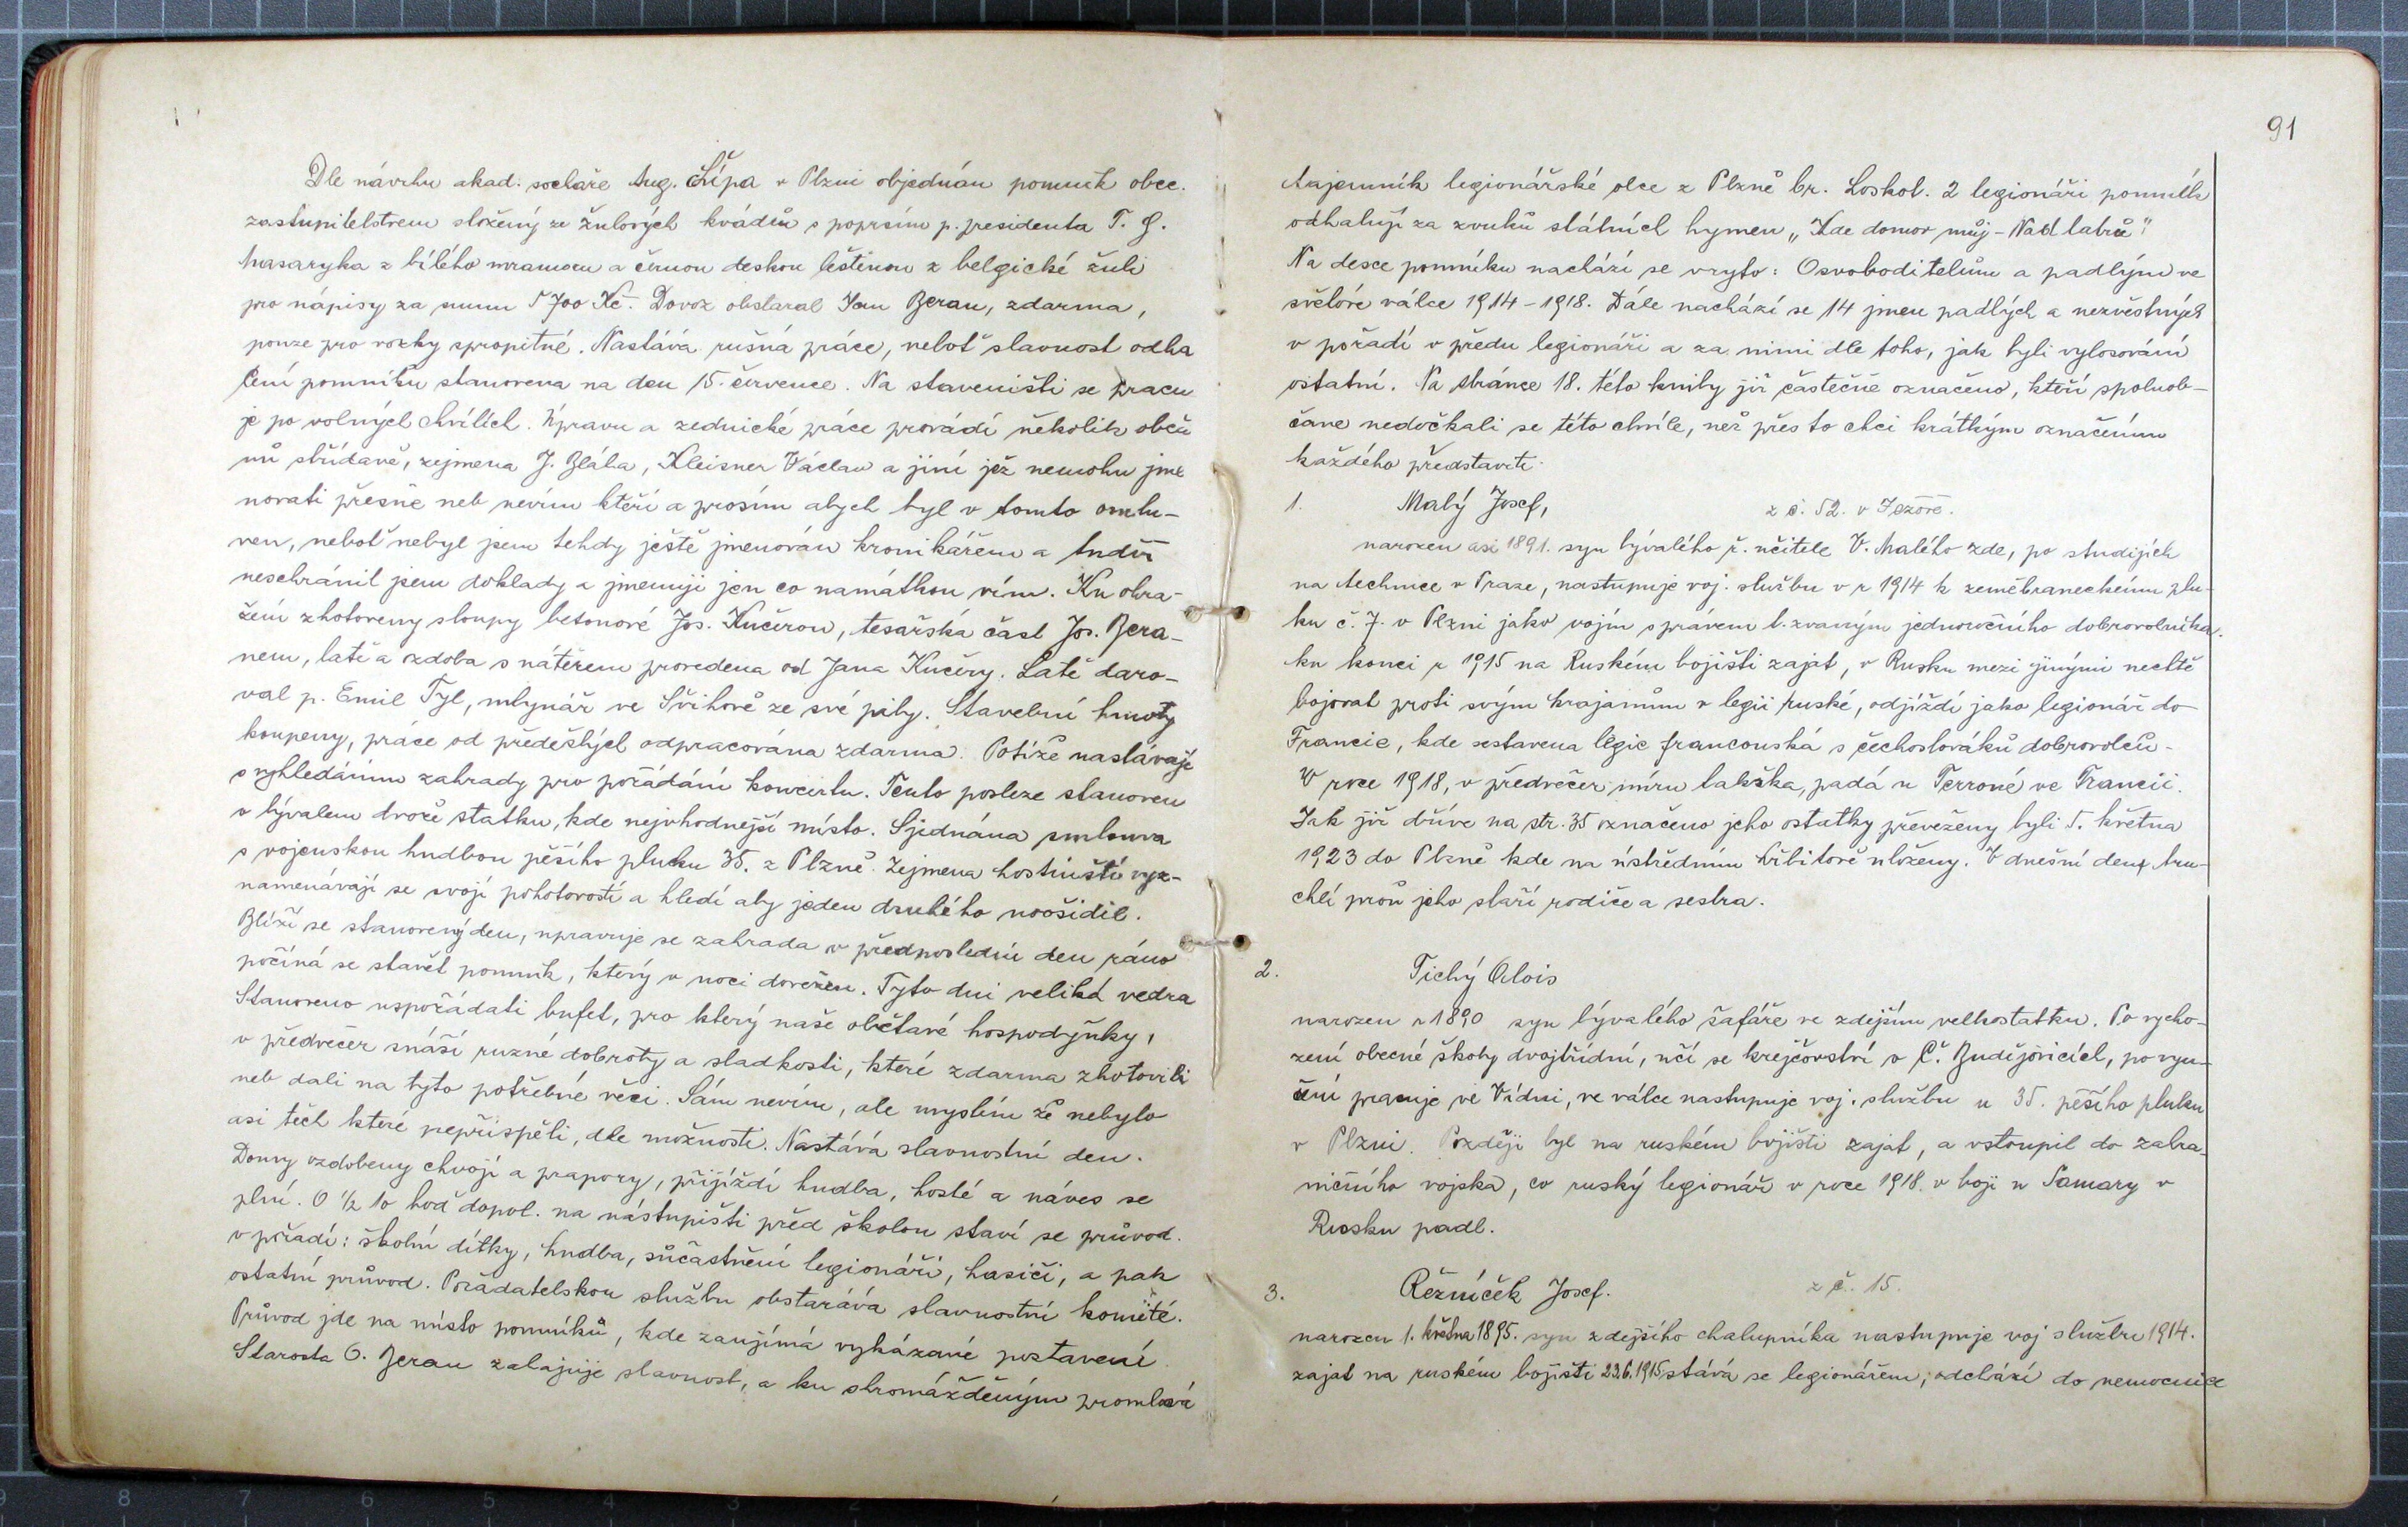 Dle návrhu akad. sochaře Aug. Čípa v Plzni objednán pomník obec.
zastupitelstvem složený ze žulových kvádrů s poprsím p. presidenta T. G.
Masaryka z bílého mramoru a černou deskou leštěnou z belgické žuli
pro nápisy za sumu 5700 Kč. Dovoz obstaral Jan Beran, zdarma,
pouze pro vozky spropitné. Nastává rušná práce, neboť slavnost odha
lení pomníku stanovena na den 15. července. Na staveništi se pracu
je po volných chvílích. Úpravu a zednické práce provádí několik obča
nů střídavě, zejmena J. Bláha, Kleisner Václav a jiní jež nemohu jme
novati přesně neb nevím kteří a prosím abych byl v tomto omlu-
ven, neboť nebyl jsem tehdy ještě jmenován kronikářem a tudíž
neschránil jsem doklady a jmenuji jen co namátkou vím. Ku ohra-
žení zhotoveny sloupy betonové Jos. Kučerou, tesařská část Jos. Bera-
nem, latě a ozdoba s nátěrem provedena od Jana Kučery. Latě daro-
val p. Emil Tyl, mlynář ve Švihově ze své pily. Stavební hmoty
koupeny, práce od předešlých odpracována zdarma. Potíže nastávaje
s vyhledáním zahrady pro pořádání koncertu. Tento posleze stanoven
v bývalem dvoře statku, kde nejvhodnejší místo. Sjednána smlouva
s vojenskou hudbou pěšího pluku 35. z Plzně. Zejmena hostinští vyz-
namenávají se svojí pohotovostí a hledí aby jeden druhého neošidil.
Blíží se stanovený den, upravuje se zahrada v předposlední den ráno
počíná se stavět pomník, který v noci dovežen. Tyto dni veliká vedra
Stanoveno uspořádati bufet, pro který naše obětavé hospodyňky,
v předvečer snáší ruzné dobroty a sladkosti, které zdarma zhotovili
neb dali na tyto potřebné věci. Sám nevím, ale myslím že nebylo
asi těch které nepřispěli, dle možnosti. Nastává slavnostní den.
Domy ozdobeny chvojí a prapory, přijíždí hudba, hosté a náves se
plní. O ½ 10 hod dopol. na nástupišti před školou staví se průvod.
v pořadí: školní dítky, hudba, súčastnění legionáři, hasiči, a pak
ostatní průvod. Pořadatelskou službu obstarává slavnostní komité.
Průvod jde na místo pomníků, kde zaujímá vykázané postavení.
Starosta O. Beran zahajuje slavnost, a ku shromážděným promlouvá
91
tajemník legionářské obce z Plzně br. Loskot. 2 legionáři pomník
odhalují za zvuků státních hymen „Kde domov můj – Nad tatrů"
Na desce pomníku nachází se vryto: Osvoboditelům a padlým ve
světové válce 1914 - 1918. Dále nachází se 14 jmen padlých a nezvěstných
v pořadí v předu legionáři a za nimi dle toho, jak byli vylosování
ostatní. Na stránce 18. této knihy již částečně označeno, kteří spoluob-
čane nedočkali se této chvíle, než přes to chci krátkým označením
každého představiti.
1. Malý Josef, z č. 52. v Jezově.
narozen asi 1891. syn bývalého ř. učitele V. Malého zde, po studijích
na technice v Praze, nastupuje voj. službu v r 1914 k zeměbraneckému plu-
ku č. 7. v Plzni jako vojín s právem t. zvaným jednoročního dobrovolníka.
ku konci r 1915 na Ruském bojišti zajat, v Rusku mezi jinými nechtě
bojovat proti svým krajanům v legii ruské, odjíždí jako legionář do
Francie, kde sestavena legie francouská s čechoslováků dobrovolců-
V roce 1918, v předvečer míru takřka, padá u Terroné ve Francii.
Jak již dříve na str. 35 označeno jeho ostatky převeženy byli 5. května
1923 do Plzně kde na ústředním hřbitově uloženy. V dnešní den tru-
chlí proň jeho staří rodiče a sestra.
2. Tichý Alois
narozen r 1890 syn bývalého šafáře ve zdejším velkostatku. Po vycho-
zení obecné školy dvojtřídní, učí se krejčovství v Č. Budějovicích, po vyu-
čení pracuje ve Vídni, ve válce nastupuje voj. službu u 35. pěšího pluku
v Plzni. Později byl na ruském bojišti zajat, a vstoupil do zahra-
ničního vojska, co ruský legionář v roce 1918. v boji u Samary v
Rusku padl.
3. Řežníček Josef. z č. 15.
narozen 1. května 1895. syn zdejšího chalupníka nastupuje voj službu 1914.
zajat na ruském bojišti 23.6.1915 stává se legionářem, odchází do nemocnice